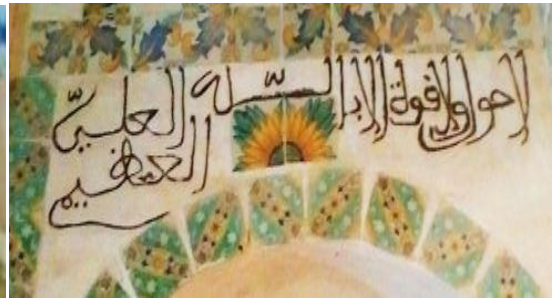 لا حول ولا قوة إلا بالله العلي
العظيم